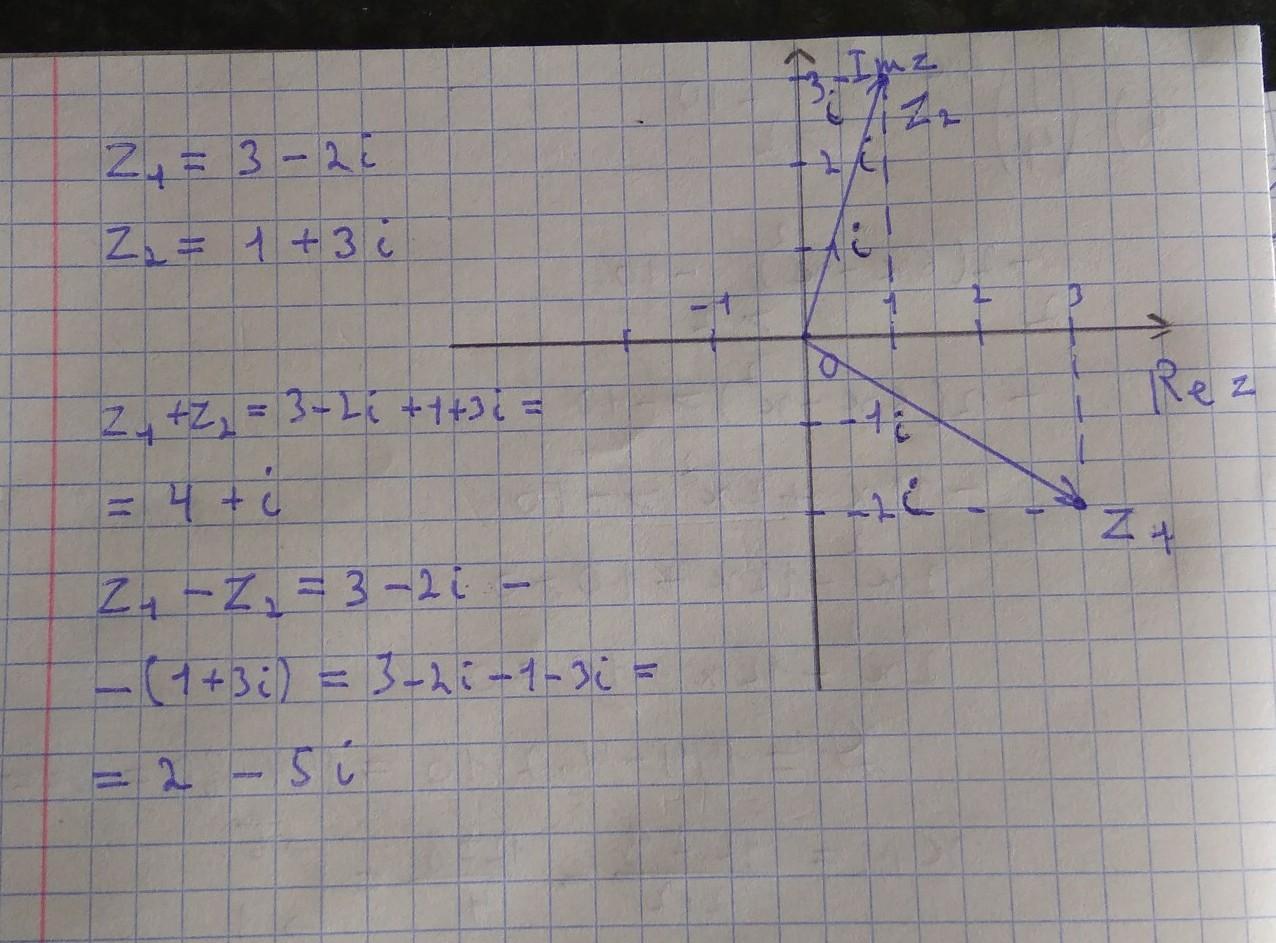 Z₁ = 3 - 2i
Z₂ = 1 + 3i
Z₁ + Z₂ = 3 - 2i + 1 + 3i =
= 4 + i
Z₁ - Z₂ = 3 - 2i -
- (1 + 3i) = 3 - 2i - 1 - 3i =
= 2 - 5i
Im z
3i
Z₂
2i
i
-1 1 2 3
0
Re z
-1i
-2i
Z₁